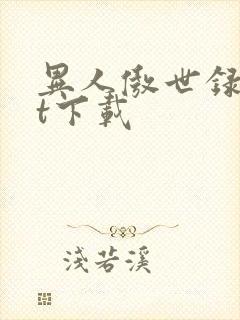 異人傲世録
t下載
淺若溪